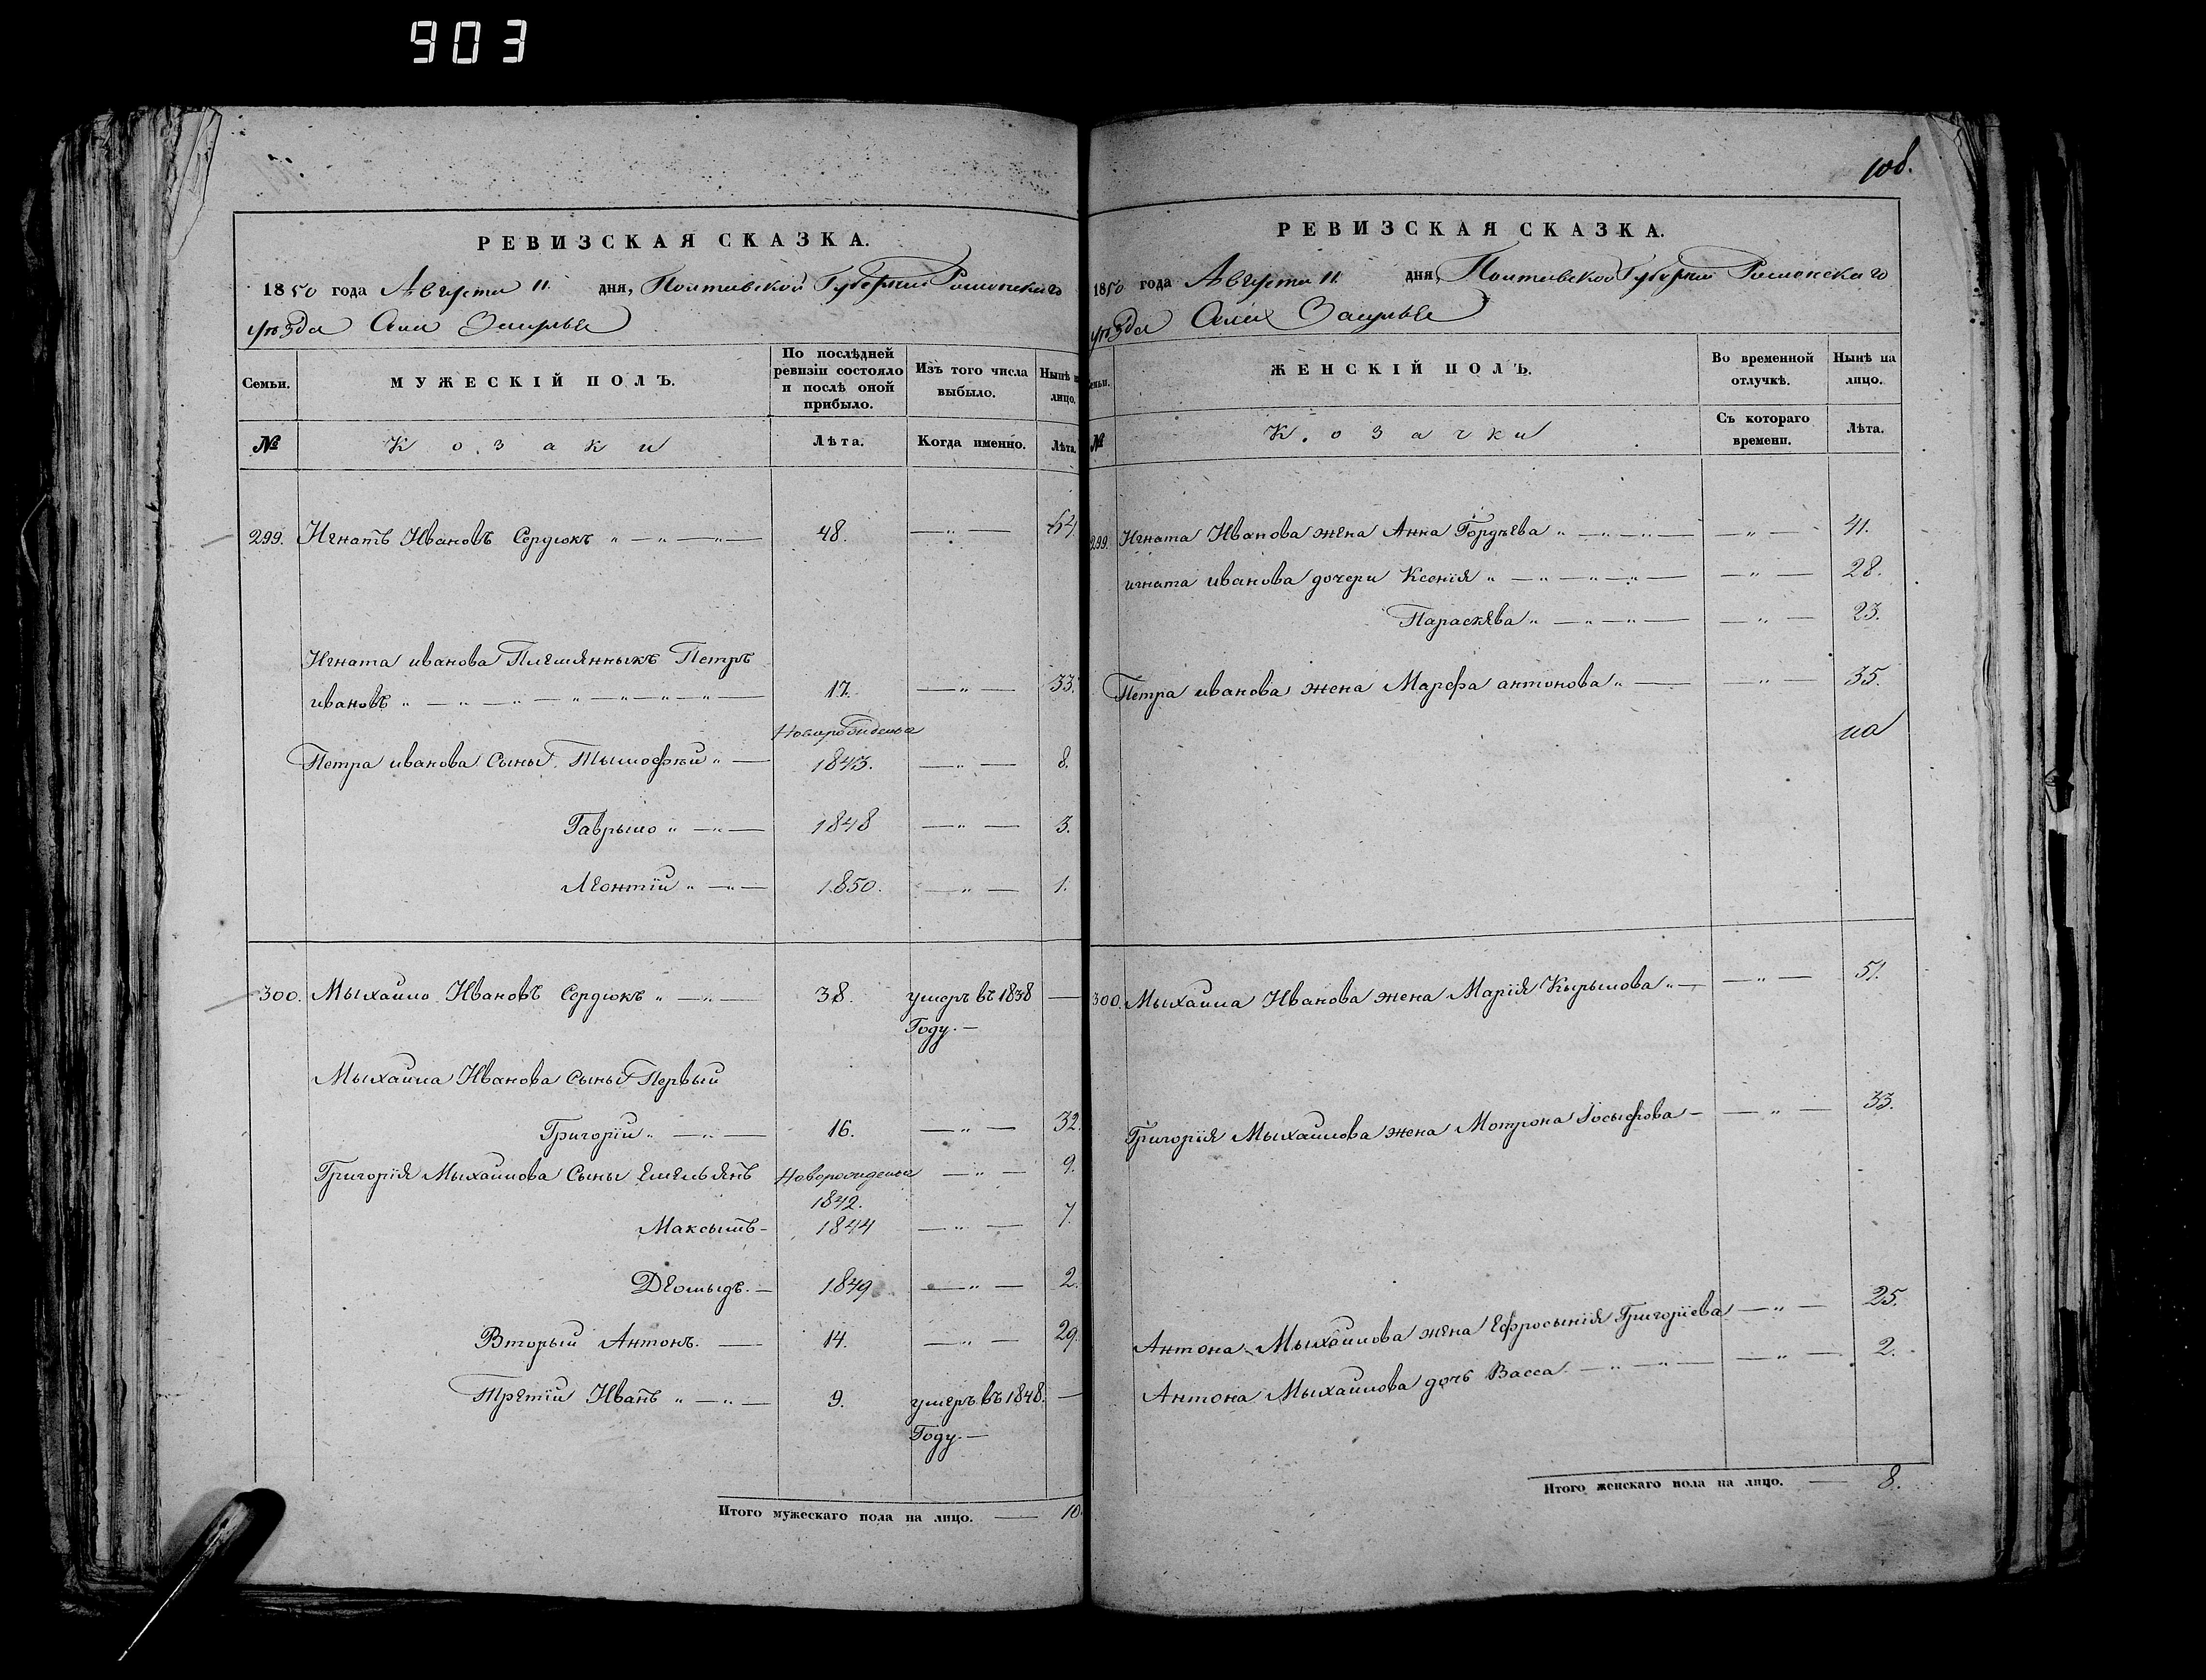 903
108.
РЕВИЗСКАЯ СКАЗКА.
1850 года Августа 11 дня, Полтавской Губернии Роменскаго
уѣзда Села Засулье
Семьи. МУЖЕСКІЙ ПОЛЪ. По послѣдней ревизіи состояло и послѣ оной прибыло. Изъ того числа выбыло. Нынѣ на лицо.
№ Козаки Лѣта. Когда именно. Лѣта.
299. Игнатъ Ивановъ Сердюкъ 48. 64
Игната иванова Племянныкъ Петръ
ивановъ 17. 33.
Новорожденые
Петра иванова Сыны Тымофѣй 1843. 8.
Гаврыло 1848 3.
Леонтій 1850. 1.
300. Мыхайло Ивановъ Сердюкъ 38. умеръ въ 1838
Году.
Мыхайла Иванова Сыны Первый
Григорій 16. 32.
Григорія Мыхайлова Сыны Емельянъ Новорожденые 9.
1842.
Максымъ 1844 7.
Деомыдъ 1849 2.
Вторый Антонъ. 14. 29.
Третій Иванъ 9. умеръ въ 1848.
Году.
Итого мужескаго пола на лицо. 10.
РЕВИЗСКАЯ СКАЗКА.
1850 года Августа 11. дня, Полтавской Губернии Роменскаго
уѣзда Села Засулье
Семьи. ЖЕНСКІЙ ПОЛЪ. Во временной отлучкѣ. Нынѣ на лицо.
№ Козачки Съ котораго времени. Лѣта.
299. Игната Иванова жена Анна Гордѣева 41.
игната иванова дочери Ксенія 28.
Параскева 23.
Петра иванова жена Марфа антонова 35.
на
300. Мыхайла Иванова жена Марія Кырылова 51.
Григорія Мыхайлова жена Мотрона Іосыфова 33.
Антона Мыхайлова жена Ефросынія Григоріева 25.
Антона Мыхайлова дочь Васса 2.
Итого женскаго пола на лицо. 8.